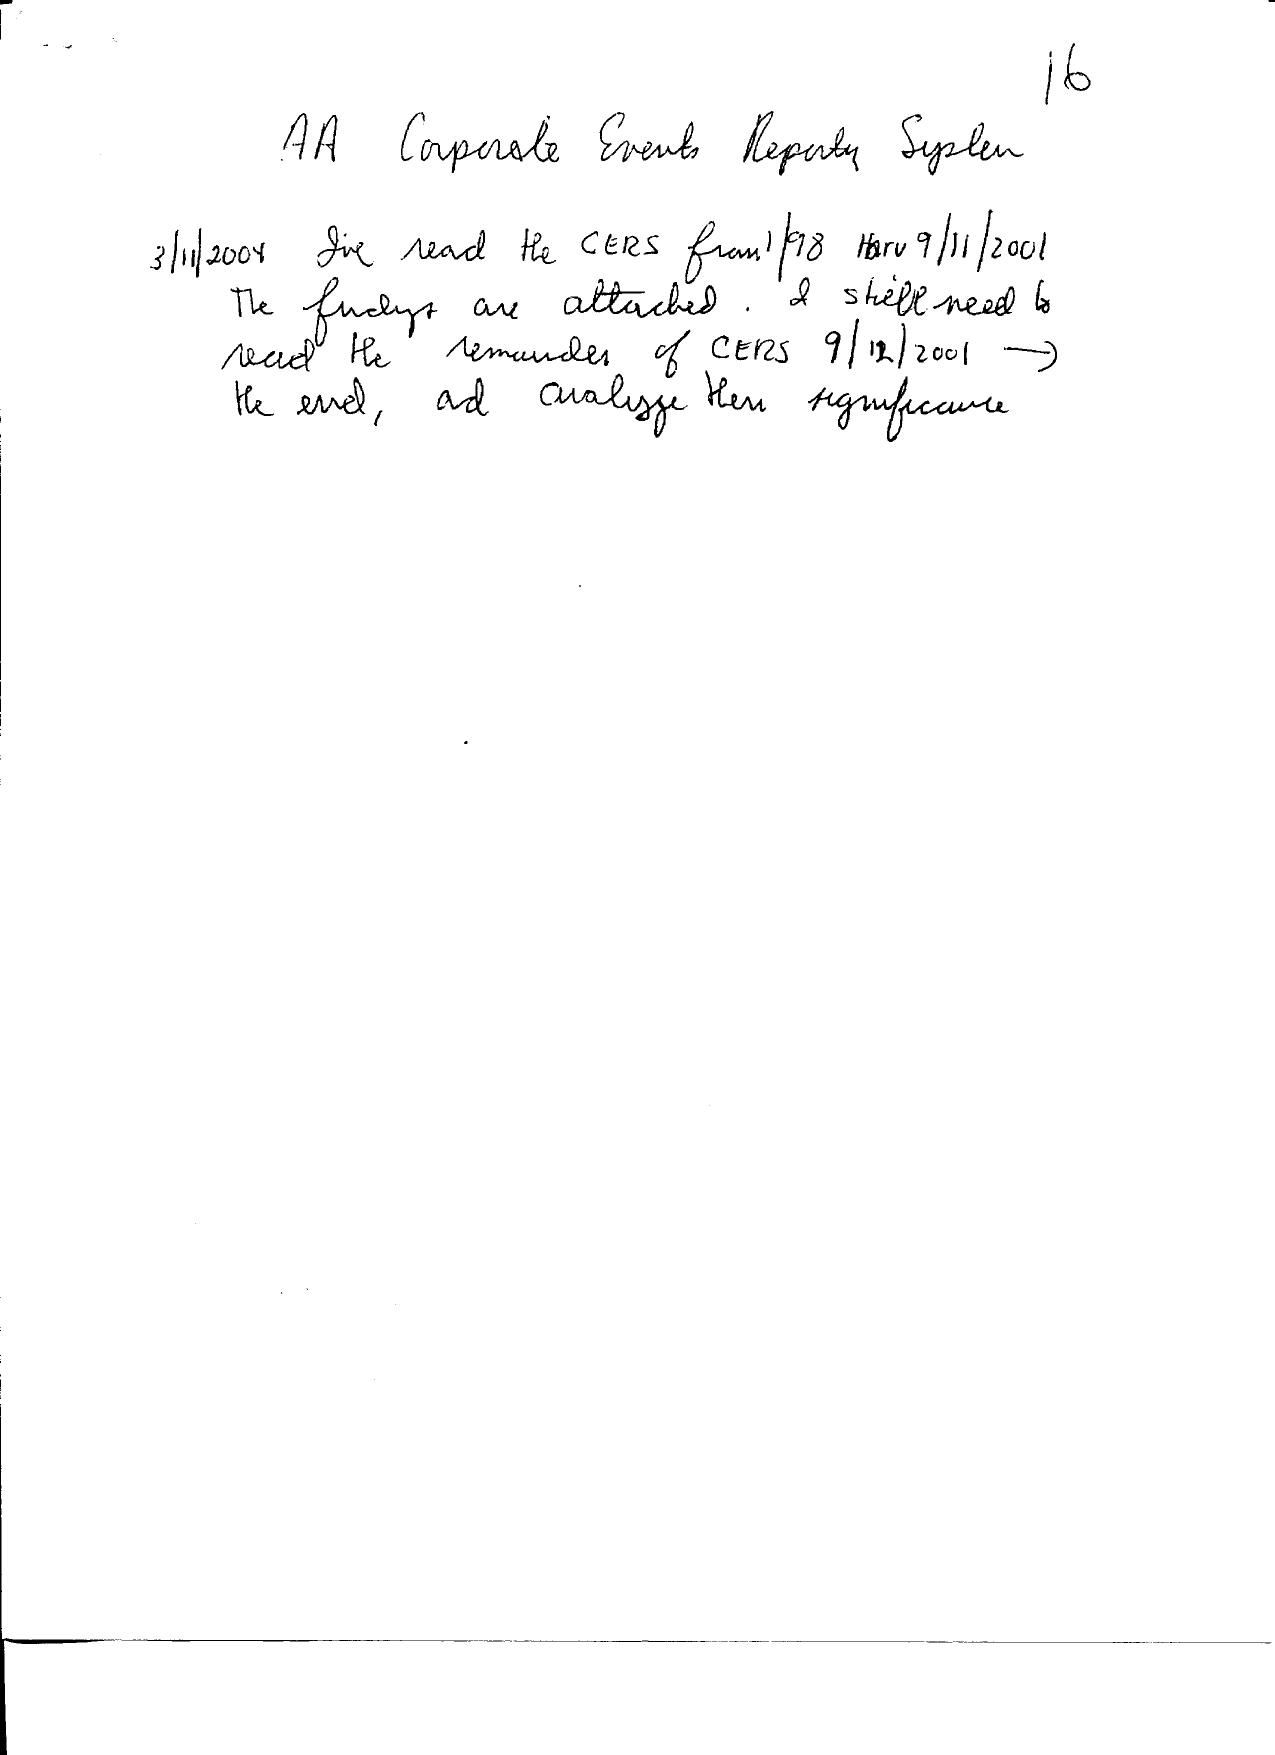 16
AA Corporate Events Reporting System
3/11/2004 I've read the CERS from 1/98 thru 9/11/2001
The findings are attached. I still need to
read the remainder of CERS 9/12/2001 →
the end, and analyze their significance